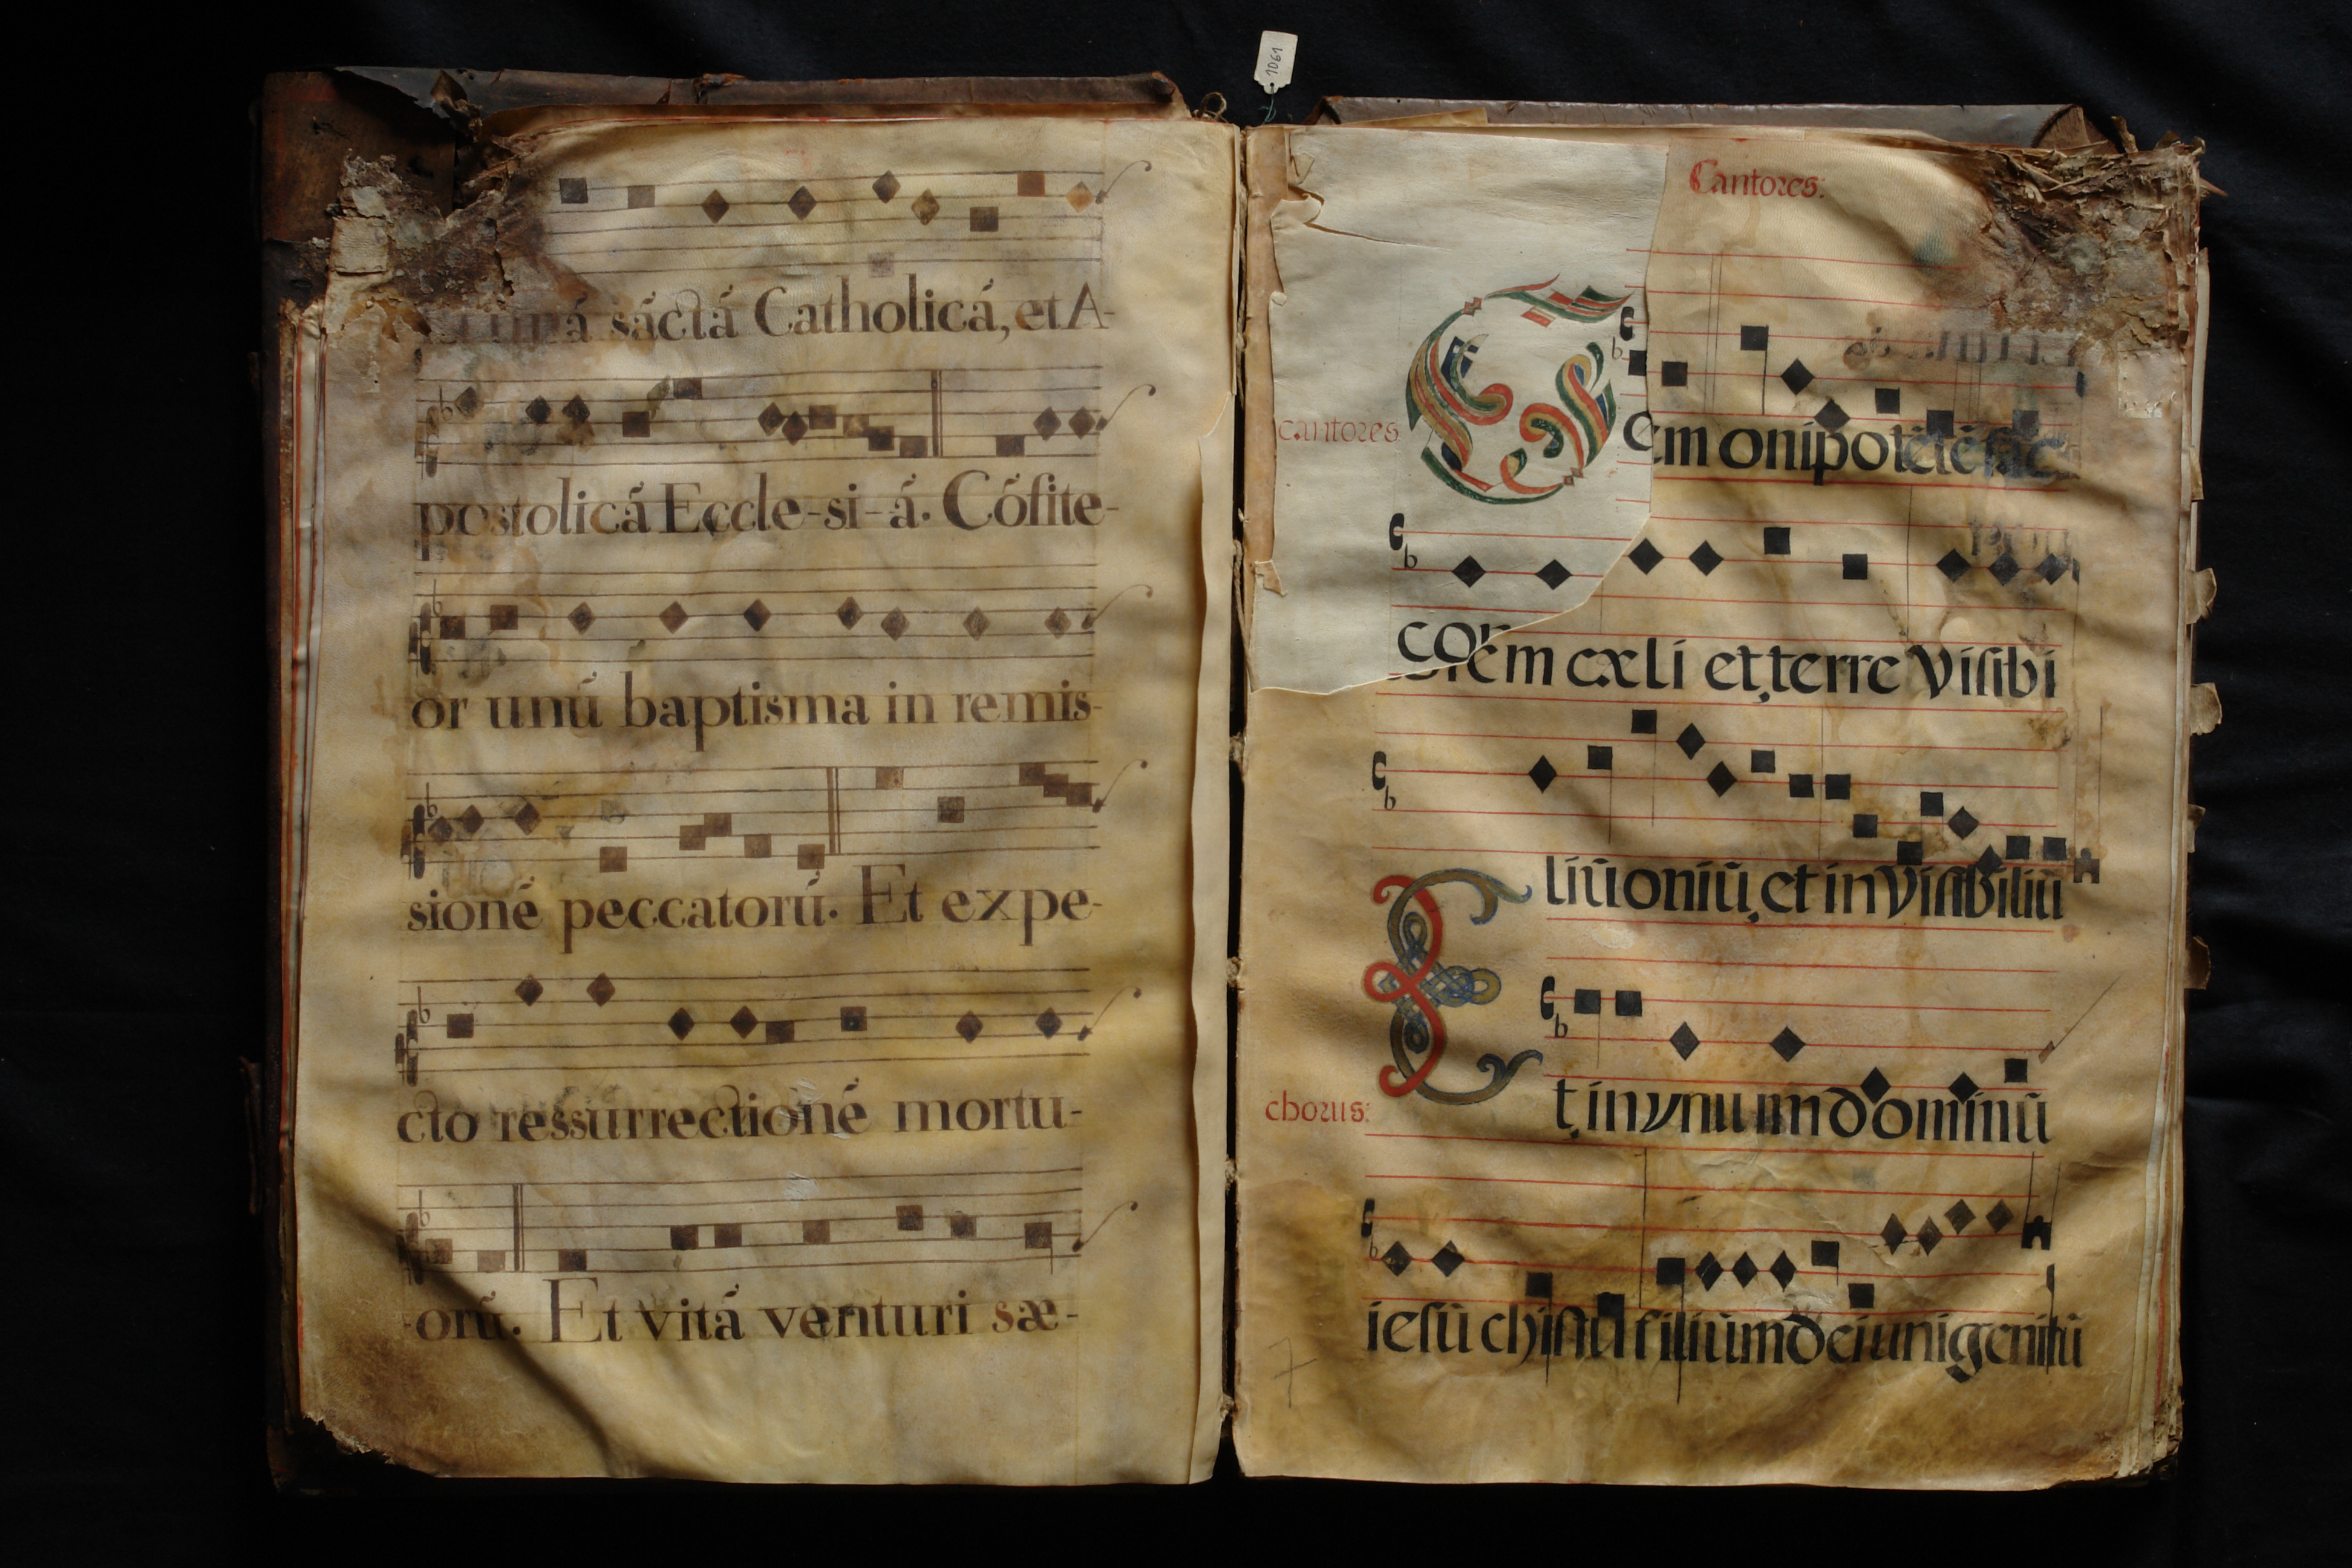 1061
unā́ sā́ctā́ Catholicā́, et A-
postolicā́ Eccle-si-ā́. Cṓfite-
or unū́ baptisma in remis-
sionḗ peccatorū́. Et expe-
cto ressurrectionḗ mortu-
-orū́. Et vitā́ venturi sæ-
Cantores:
cantores
em onipotētē fac
torem cæli et terre visibi
liū oniū, et in visibiliū
chorus:
Et in vnuım dominū
iesū chistū filiūm dei unigenitū
7